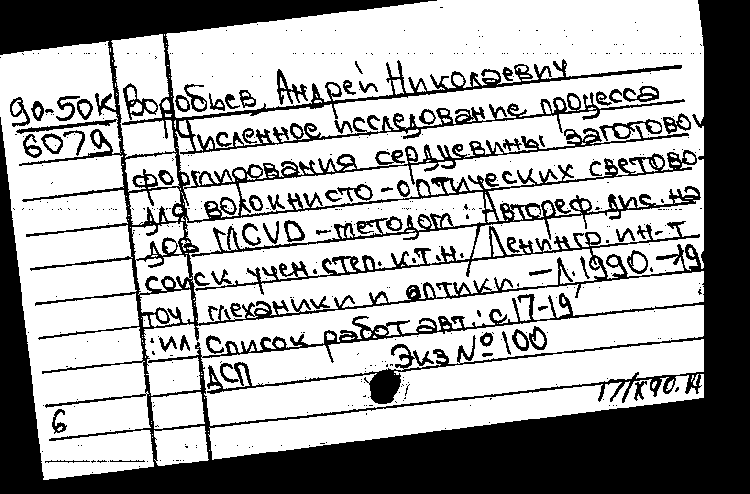 90-50К Воробьев, Андрей Николаевич
6079 Численное исследование процесса
формирования сердцевины заготовок
для волокнисто-оптических светово-
дов MCVD-методом: Автореф. дис. на
соиск. учен. степ. к.т.н. / Ленингр. ин-т
точ. механики и оптики. - Л. 1990. - 19
: ил. Список работ авт.: с. 17-19
ДСП Экз № 100
17/X 90.
6